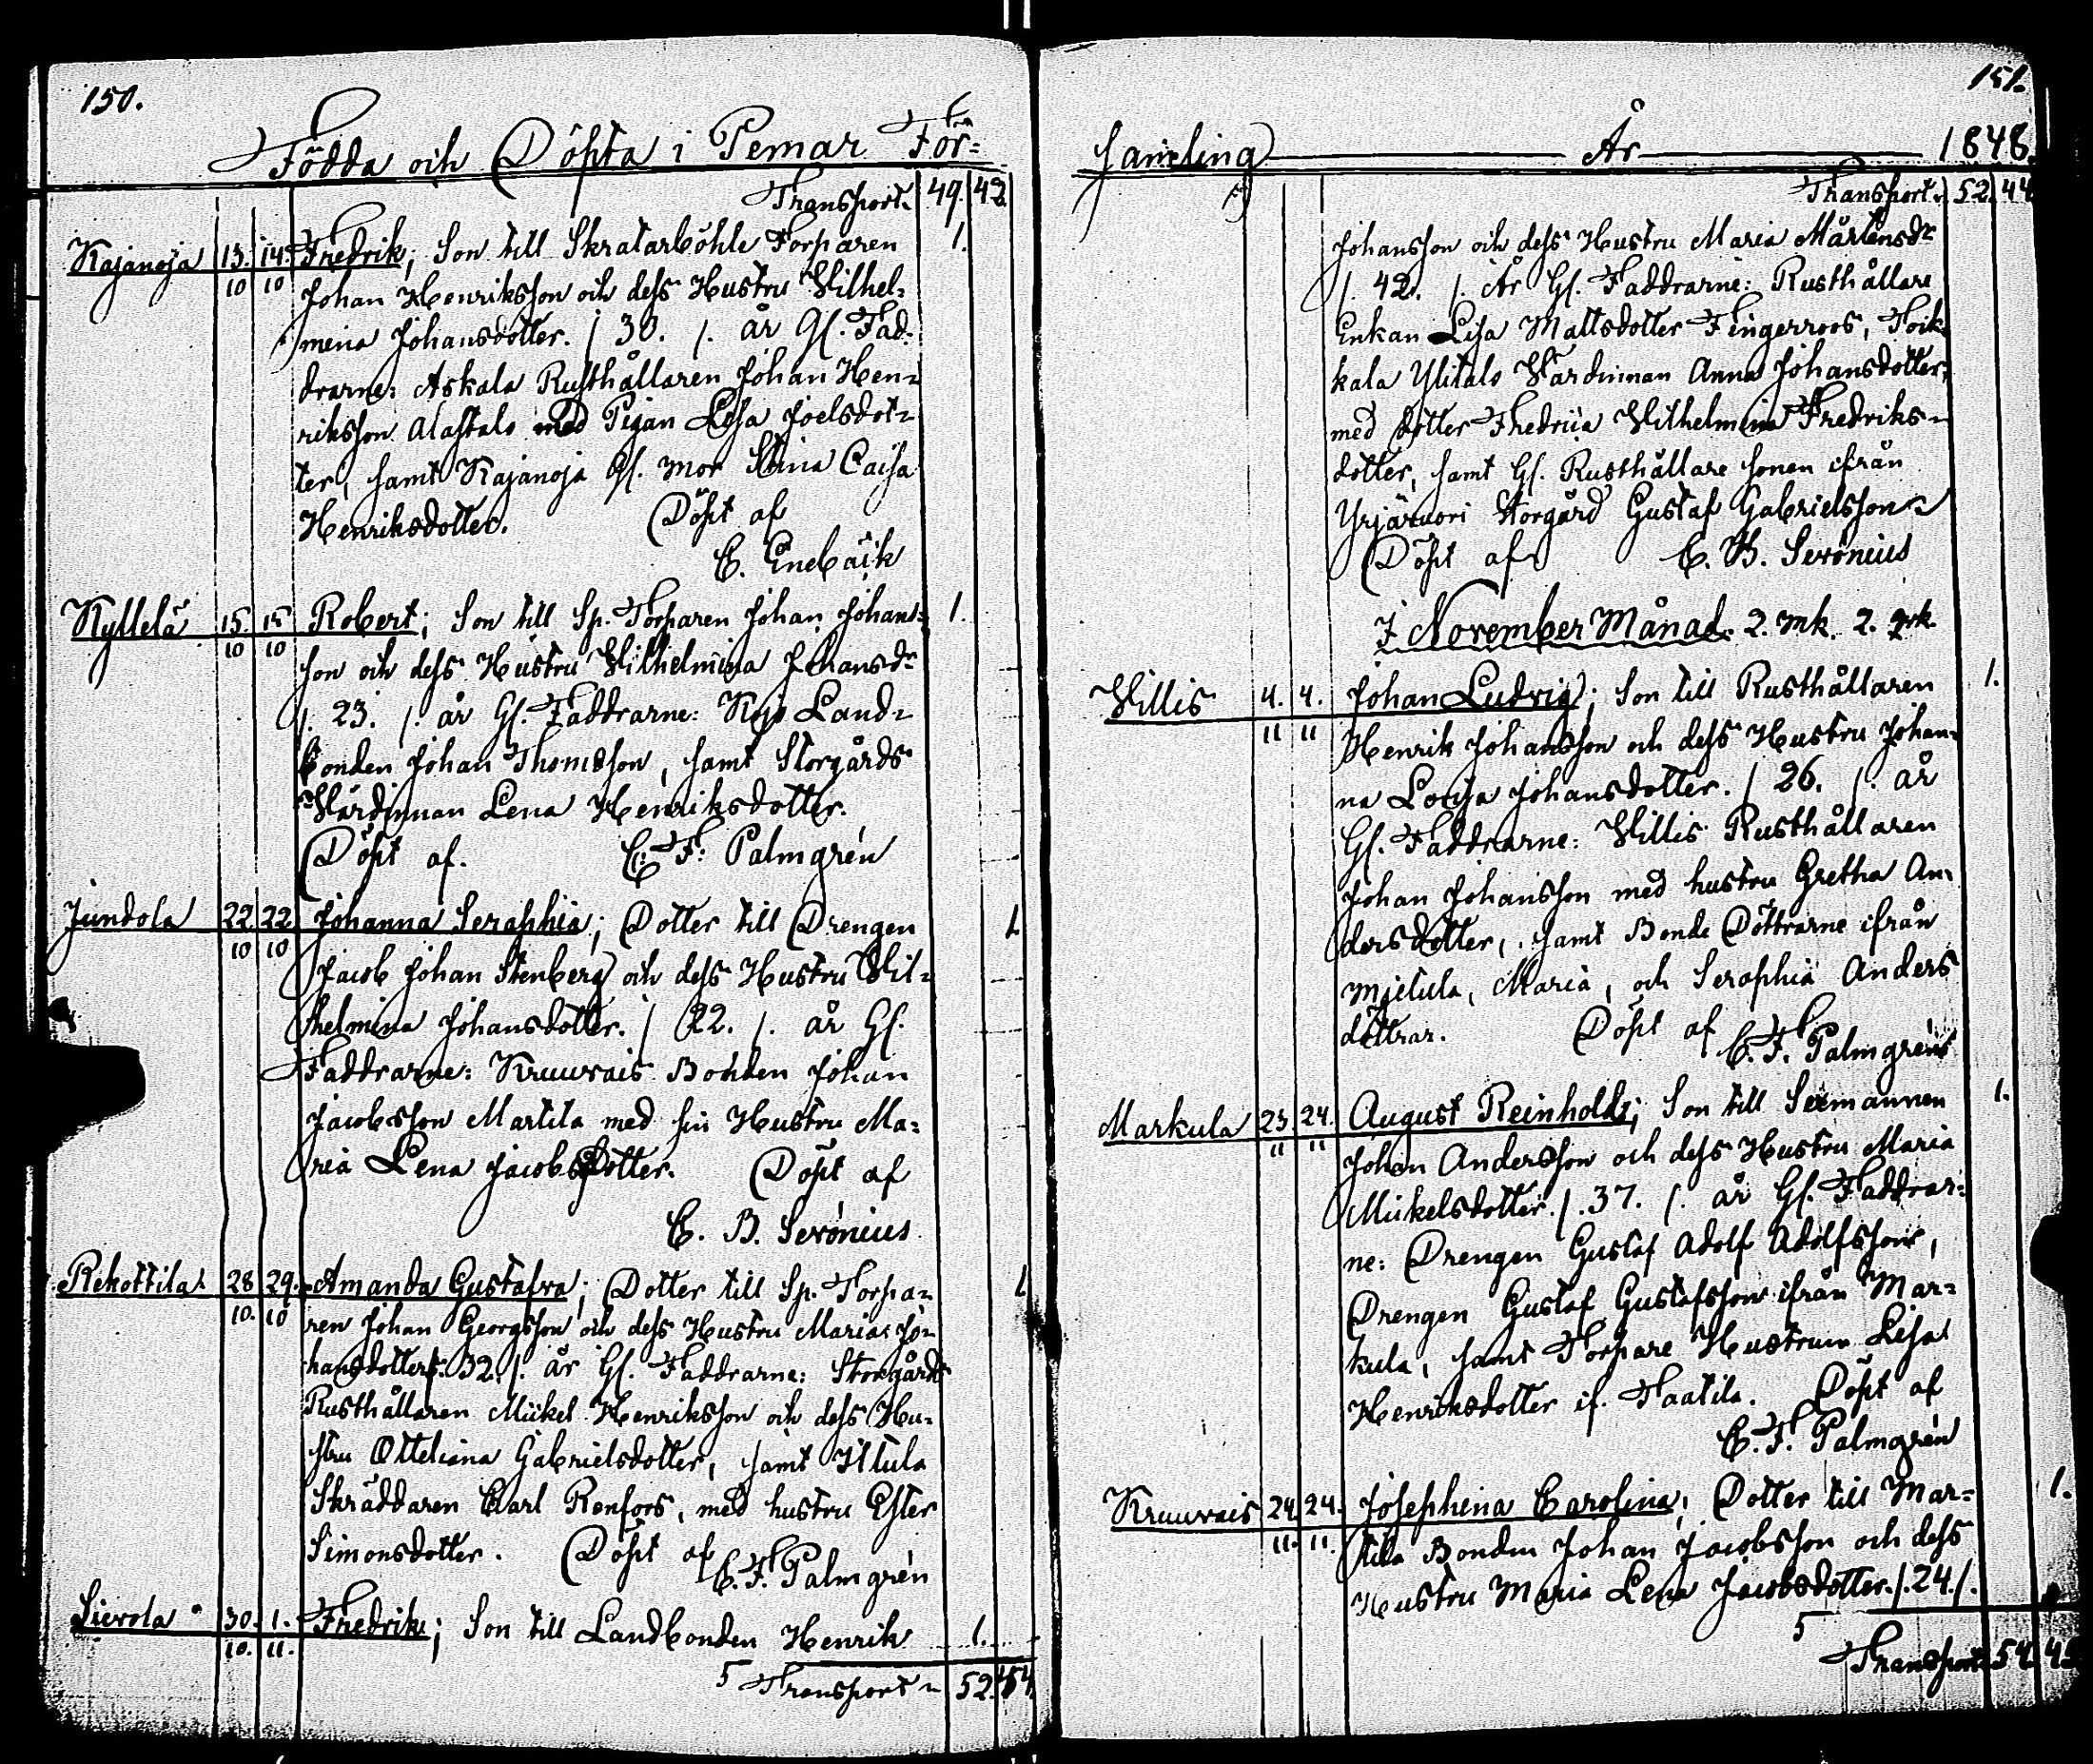 150.
Födda och Döpta i Pemar För=
Transport. 49. 42.
Kajanoja 13. 14. Fredrik; Son till Skratarböhle Torparen 1.
10 10 Johan Henriksson och dess Hustru Wilhel=
mina Johansdotter. /. 30. /. år Gl. Fad=
drarne: Askala Rusthållaren Johan Hen=
riksson Alastalo med Pigan Lisa Joelsdot=
ter, samt Kajanoja Gl. mor Stina Caisa
Henriksdotter. Döpt af
C. Enebäck
Kyllelä 15. 15 Robert; Son till Sp. Torparen Johan Johans= 1.
10 10 son och dess Hustru Wilhelmina Johansdr
/. 23. /. år Gl. Faddrarne: Kojo Land=
bonden Johan Thomsson, samt Storgårds
Wärdinnan Lena Henriksdotter.
Döpt af. C. F. Palmgrén
Jundola 22 22 Johanna Seraphia; Dotter till Drengen 1.
10 10 Jacob Johan Stenberg och dess Hustru Wil=
helmina Johansdotter. /. 22. /. år Gl.
Faddrarne: Kruuvais Bonden Johan
Jacobsson Martila med sin Hustru Ma=
ria Lena Jacobsdotter. Döpt af
C. B. Serónius
Rekottila 28 29. Amanda Gustafva; Dotter till Sp. Torpa= 1
10. 10 ren Johan Georgsson och dess Hustru Maria Jo=
hansdotter /. 32. /. år Gl. Faddrarne: Storgårds
Rusthållaren Mickel Henriksson och dess Hu=
stru Otteliana Gabrielsdotter, samt Ittula
Skräddaren Carl Renfors, med hustru Ester
Simonsdotter. Döpt af
C. F. Palmgrén
Sievola 30. 1. Fredrik; Son till Landbonden Henrik 1.
10. 11.
5 Transport 52. 44.
151.
samling År 1848.
Transport. 52. 44
Johansson och dess Hustru Maria Mårtensdr
/. 42. /. År Gl. Faddrarne: Rusthållare
Enkan Lisa Mattsdotter Fingerroos, Toik
kala Ylitalo Wärdinnan Anna Johansdotter,
med dotter Fredrica Wilhelmina Fredriks=
dotter, samt Gl. Rusthållare sonen ifrån
Yrjävuori Storgård Gustaf Gabrielsson
Döpt af C. B. Serónius
I November Månad. 2. mk. 2. qvk.
Willis 4. 4. Johan Ludvig; Son till Rusthållaren 1.
11 11 Henrik Johansson och dess Hustru Johan=
na Lovisa Johansdotter. /. 26. /. år
Gl. Faddrarne: Willis Rusthållaren
Johan Johansson med hustru Gretha An=
dersdotter, samt Bonde Döttrarne ifrån
Mjetula, Maria, och Seraphia Anders
döttrar. Döpt af
C. F. Palmgrén
Markula 23. 24. August Reinhold; Son till Seemannen 1.
11 11 Johan Andersson och dess Hustru Maria
Mickelsdotter. /. 37. /. år Gl. Faddrar=
ne: Drengen Gustaf Adolf Adolfsson,
Drengen Gustaf Gustafsson ifrån Mar=
kula, samt Torpare Hustrun Lisa
Henriksdotter if. Taatila. Döpt af
C. F. Palmgrén
Kruuvais 24. 24. Josephina Carolina; Dotter till Mar= 1.
11. 11. tila Bonden Johan Jacobsson och dess
Hustru Maria Lena Jacobsdotter. /. 24. /.
5
Transport. 54. 45